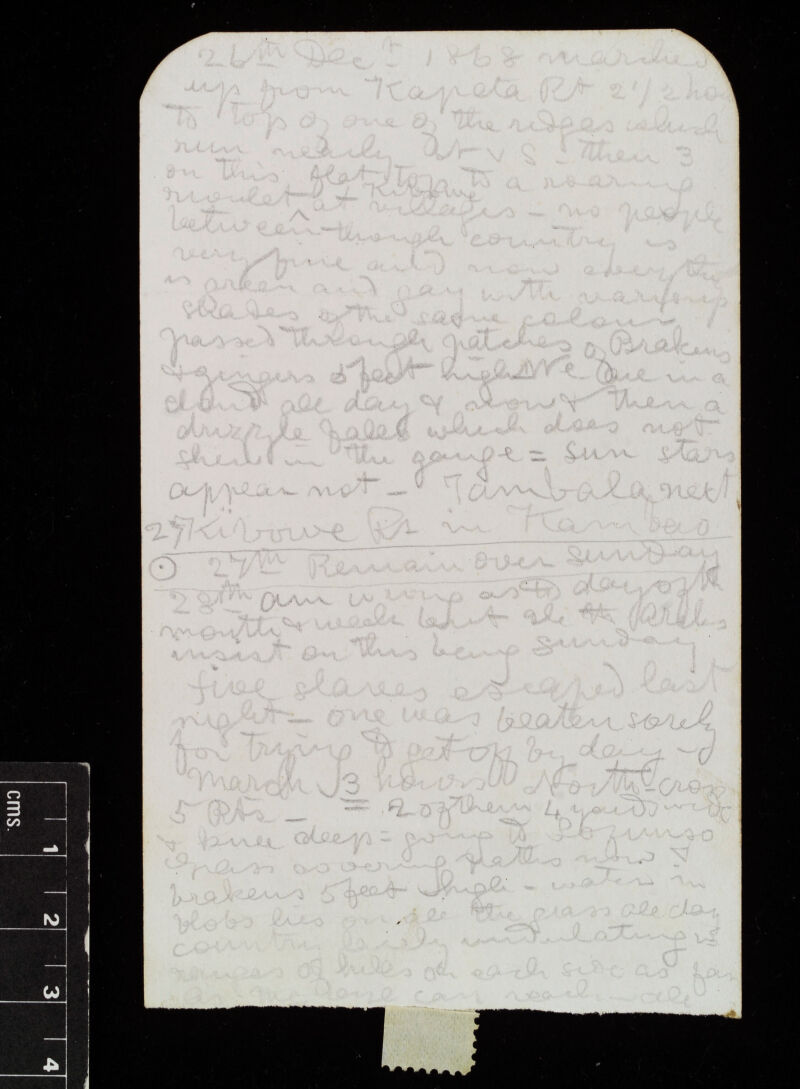 26th Decr 1868 marched
up from Kapeta Rt 2 1/2 hou
to top of one of the ridges which
run nearly N & S - then 3
on this flat top to a roaring
rivulet at Kibowe villages - no people
between though country is
very fine and now everything
is green and gay with varying
shades of the same colour
passed through patches of Brakens
& gingers 5 feet high We are in a
cloud all day & now & then a
drizzle falls which does not
shew in the gauge = Sun stars
appear not - Tambala next
27 Kibowe Rt in Kambao
27th Remain over Sunday
28th am wrong as to day of the
month & week but all the Arabs
insist on this being Sunday
five slaves escaped last
night - one was beaten sorely
for trying to get off by day -
March 3 hours North - cross
5 Rts - = 2 of them 4 yards wide
& knee deep = going to Lozunso
grass covering paths now &
brakens 5 feet high - water in
blobs lies on all the grass all day
country lovely undulating is
ranges of hills on each side as far
as eye can reach